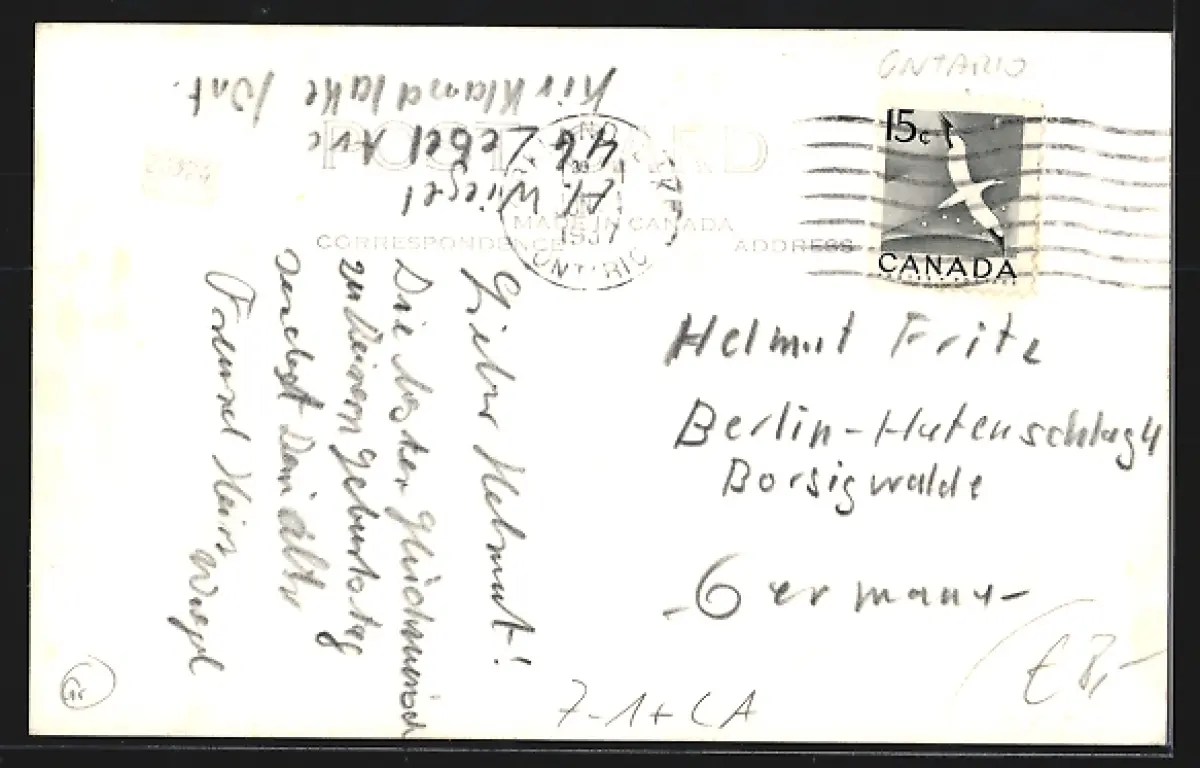 ONTARIO
POST CARD
MADE IN CANADA
CORRESPONDENCE
ADDRESS
15c
CANADA
1957
ONT RIO
H. Wiesel
46 Zebel Ave
Kirklandlake Ont.
Lieber Helmut!
Die besten Glückwünsche
zu Deinem Geburtstag
sendet Dein alter
Freund Hein
Wiesel
Helmut Fritz
Berlin-Hutenschlag 4
Borsigwalde
-Germany-
7-1+CA